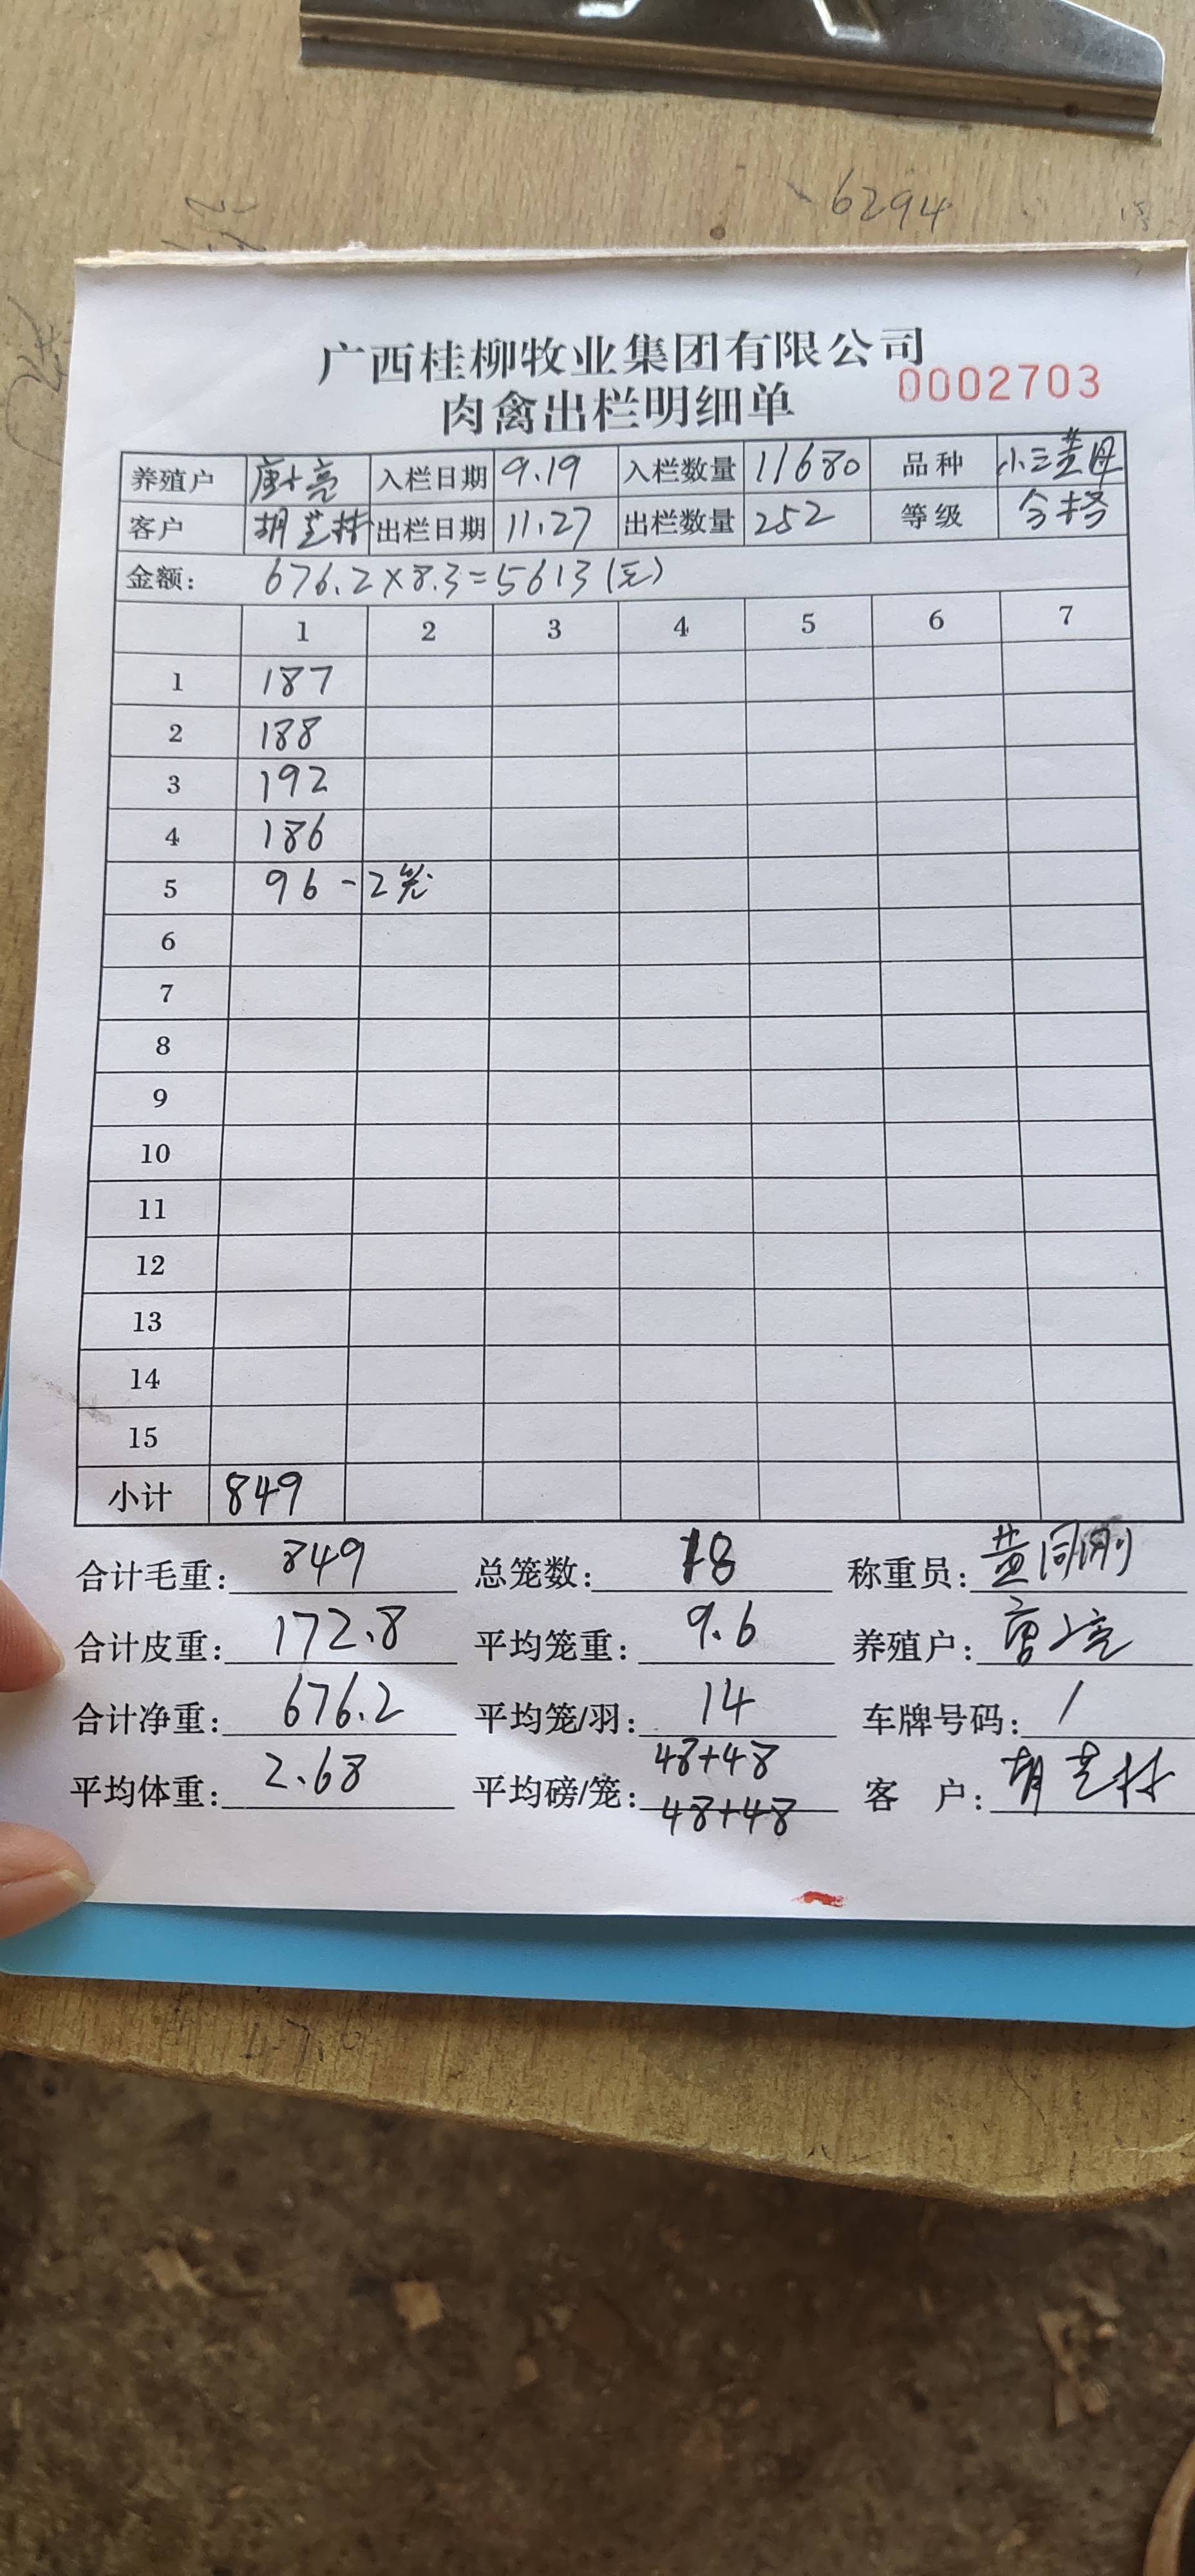 6294
广西桂柳牧业集团有限公司
0002703
肉禽出栏明细单
养殖户 唐小亮 入栏日期 9.19 入栏数量 11680 品种 小三黄母
客户 胡芝林 出栏日期 11.27 出栏数量 252 等级 合格
金额: 676.2×8.3=5613(元)
1 2 3 4 5 6 7
1 187
2 188
3 192
4 186
5 96 -2笼
6
7
8
9
10
11
12
13
14
15
小计 849
合计毛重: 849 总笼数: 18 称重员: 黄同刚
合计皮重: 172.8 平均笼重: 9.6 养殖户: 唐小亮
合计净重: 676.2 平均笼/羽: 14 车牌号码: /
平均体重: 2.68 平均磅/笼: 48+48 客 户: 胡芝林
48+48